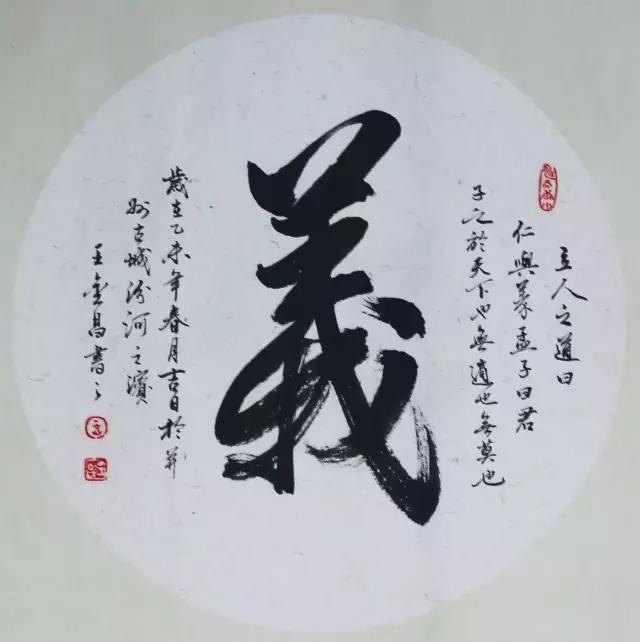 立人之道曰
仁與義孟子曰君
子之於天下也無適也無莫也
義
歲在乙未年春月吉日於并
州古城汾河之濱
王昌書之